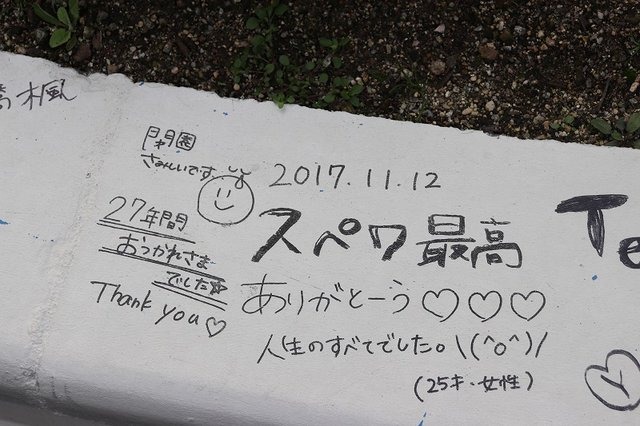 閉園
さみしいです
27年間
おつかれさま
でした
Thank you♡
2017.11.12
スペワ最高
ありがとーう♡♡♡
人生のすべてでした。\(^o^)/
(25才・女性)
楓
Te